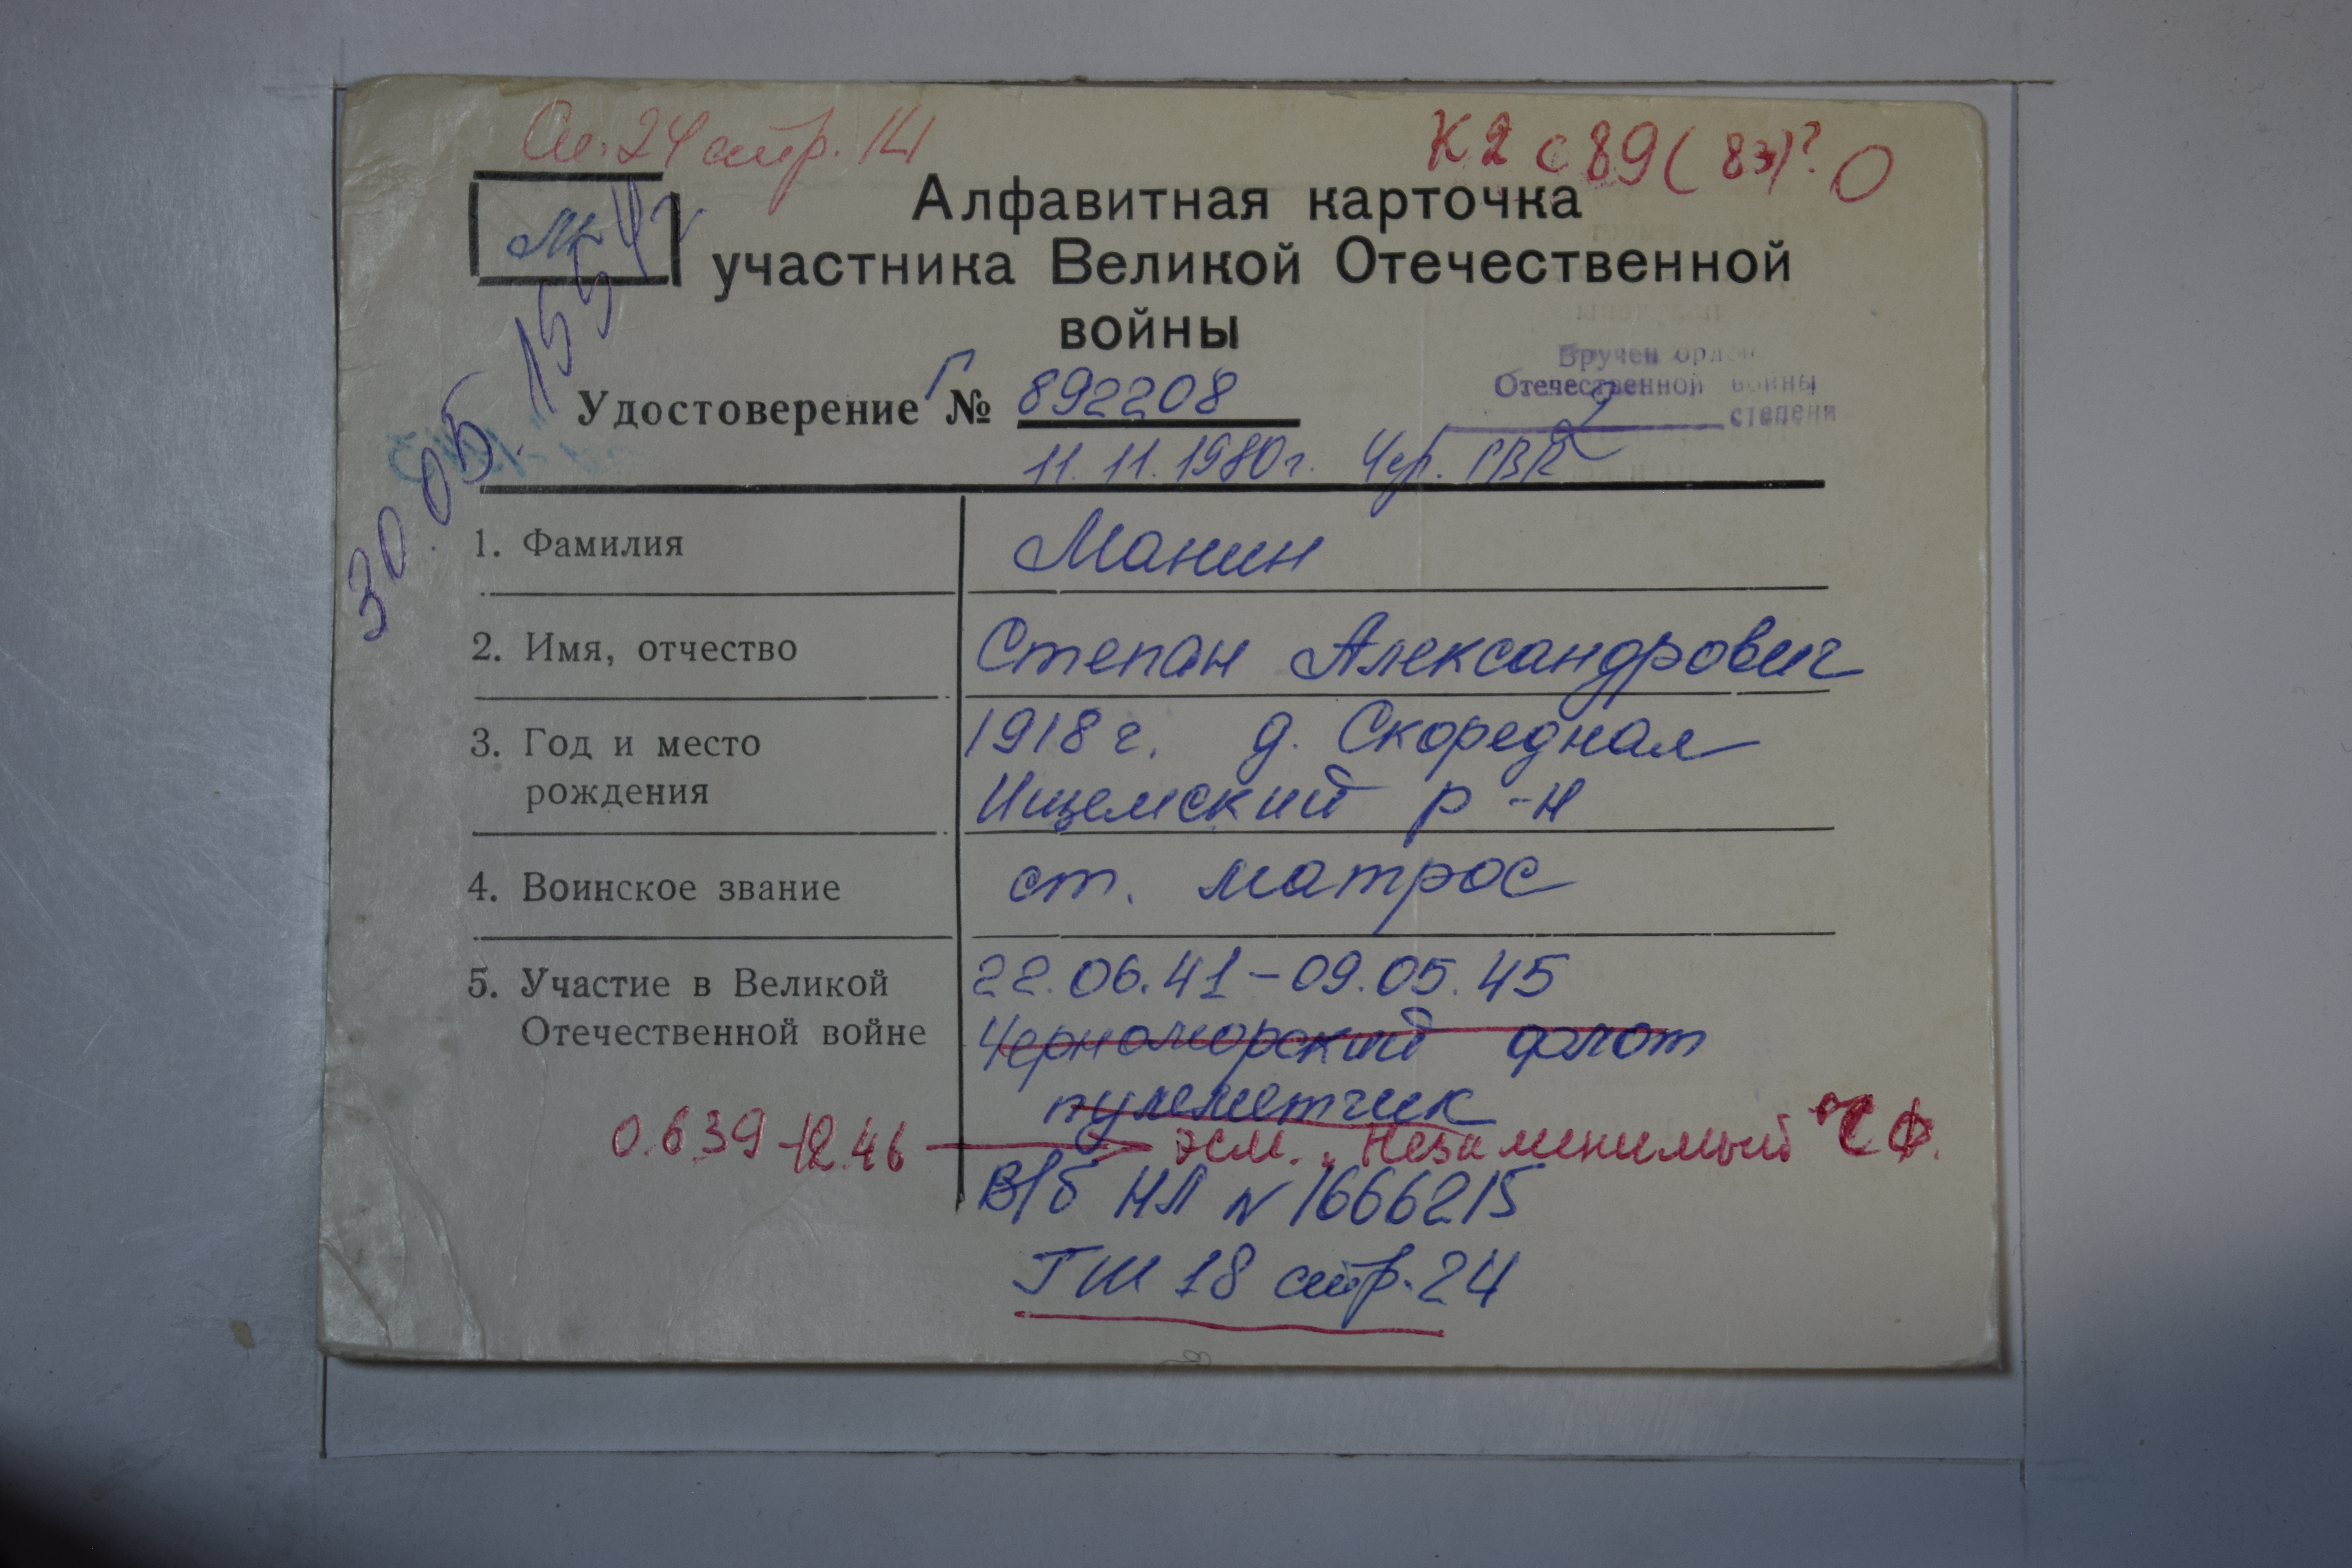 Ал. 24 стр. 141
К2 с 89 (83)? О
Мк
Алфавитная карточка
участника Великой Отечественной
войны
Вручен орден
Отечественной войны
2 степени
Удостоверение Г № 892208
11.11.1980г. Чер. ГВК
30.05.
1. Фамилия Манин
2. Имя, отчество Степан Александрович
3. Год и место 1918 г. д. Скородная
рождения Ищемский р-н
4. Воинское звание ст. матрос
5. Участие в Великой 22.06.41-09.05.45
Отечественной войне Черноморский флот
пулеметчик
0.6.39-12.46 эсм. „Незаменимый" ЧФ.
В/б НЛ № 1666215
ГШ 18 стр. 24